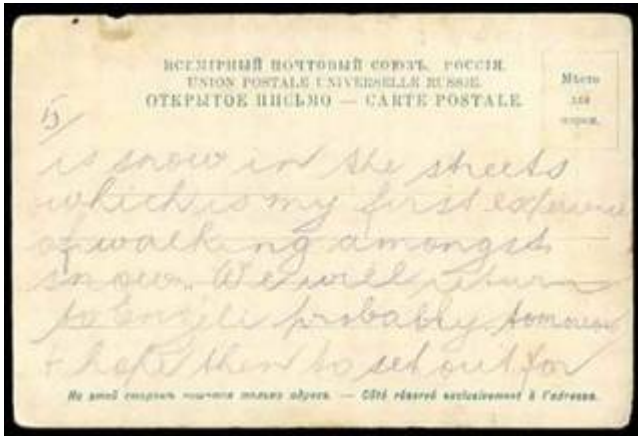 ВСЕМІРНЫЙ ПОЧТОВЫЙ СОЮЗЪ. РОССІЯ.
UNION POSTALE UNIVERSELLE RUSSIE.
ОТКРЫТОЕ ПИСЬМО — CARTE POSTALE.
Мѣсто
для
марки.
5/
is snow in the streets
which is my first experience
of walking amongst
snow. We will return
to Enzeli probably tomorrow
+ hope then to set out for
На этой сторонѣ пишется только адресъ. — Côté réservé exclusivement à l'adresse.